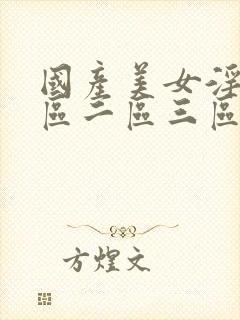 國產美女淫
區二區三區
方煌文